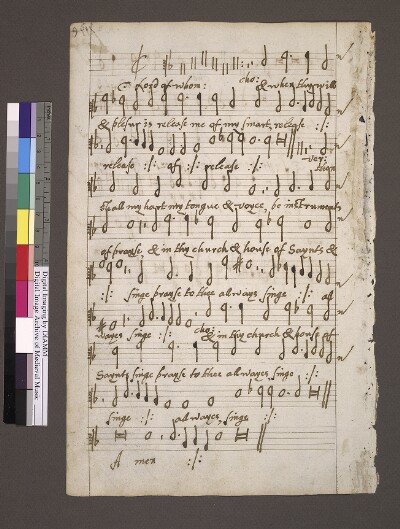 O Lord of whom: cho: & when thy will
& plesur is release me of my smart, release :/:
release :/: of :/: release :/: ver: then
shall my hart my tongue & voyce, be instruments
of prayse, & in thy church & house of Saynts &
:/: singe prayse to thee allwayes singe :/: al
wayes singe :/: cho: & in thy church & house of
Saynts singe prayse to thee allwayes singe :/:
singe :/: allwayes, singe :/:
A men :/:
Digital Imaging by DIAMM
Digital Image Archive of Medieval Music